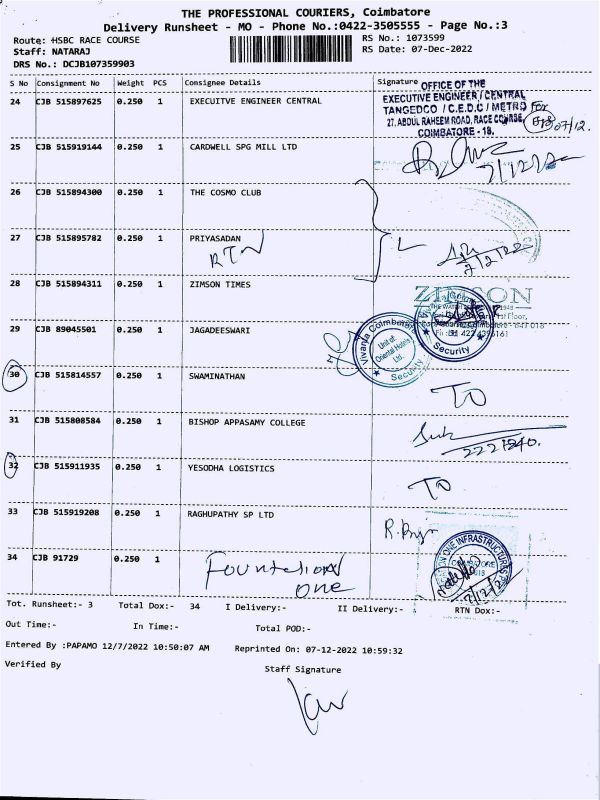 THE PROFESSIONAL COURIERS, Coimbatore
Delivery Runsheet - MO - Phone No.:0422-3505555 - Page No.:3
Route: HSBC RACE COURSE
RS No.: 1073599
Staff: NATARAJ
RS Date: 07-Dec-2022
DRS No.: DCJB107359903
S No Consignment No Weight PCS Consignee Details Signature
24 CJB 515897625 0.250 1 EXECUITVE ENGINEER CENTRAL
OFFICE OF THE
EXECUTIVE ENGINEER / CENTRAL
TANGEDCO / C.E.D.C / METRO
27, ABDUL RAHEEM ROAD, RACE COURSE,
COIMBATORE - 18.
For
07/12.
25 CJB 515919144 0.250 1 CARDWELL SPG MILL LTD
26 CJB 515894300 0.250 1 THE COSMO CLUB
27 CJB 515895782 0.250 1 PRIYASADAN
RTN
28 CJB 515894311 0.250 1 ZIMSON TIMES
ZIMSON
29 CJB 89045501 0.250 1 JAGADEESWARI
Vivanta Coimbatore
Unit of
Oriental Hotels
Ltd.
Security
Security
30 CJB 515814557 0.250 1 SWAMINATHAN
TO
31 CJB 515808584 0.250 1 BISHOP APPASAMY COLLEGE
2221840.
32 CJB 515911935 0.250 1 YESODHA LOGISTICS
TO
33 CJB 515919208 0.250 1 RAGHUPATHY SP LTD
34 CJB 91729 0.250 1
ONE INFRASTRUCTURE
one
Tot. Runsheet:- 3 Total Dox:- 34 I Delivery:- II Delivery:- RTN Dox:-
Out Time:- In Time:- Total POD:-
Entered By :PAPAMO 12/7/2022 10:50:07 AM Reprinted On: 07-12-2022 10:59:32
Verified By Staff Signature